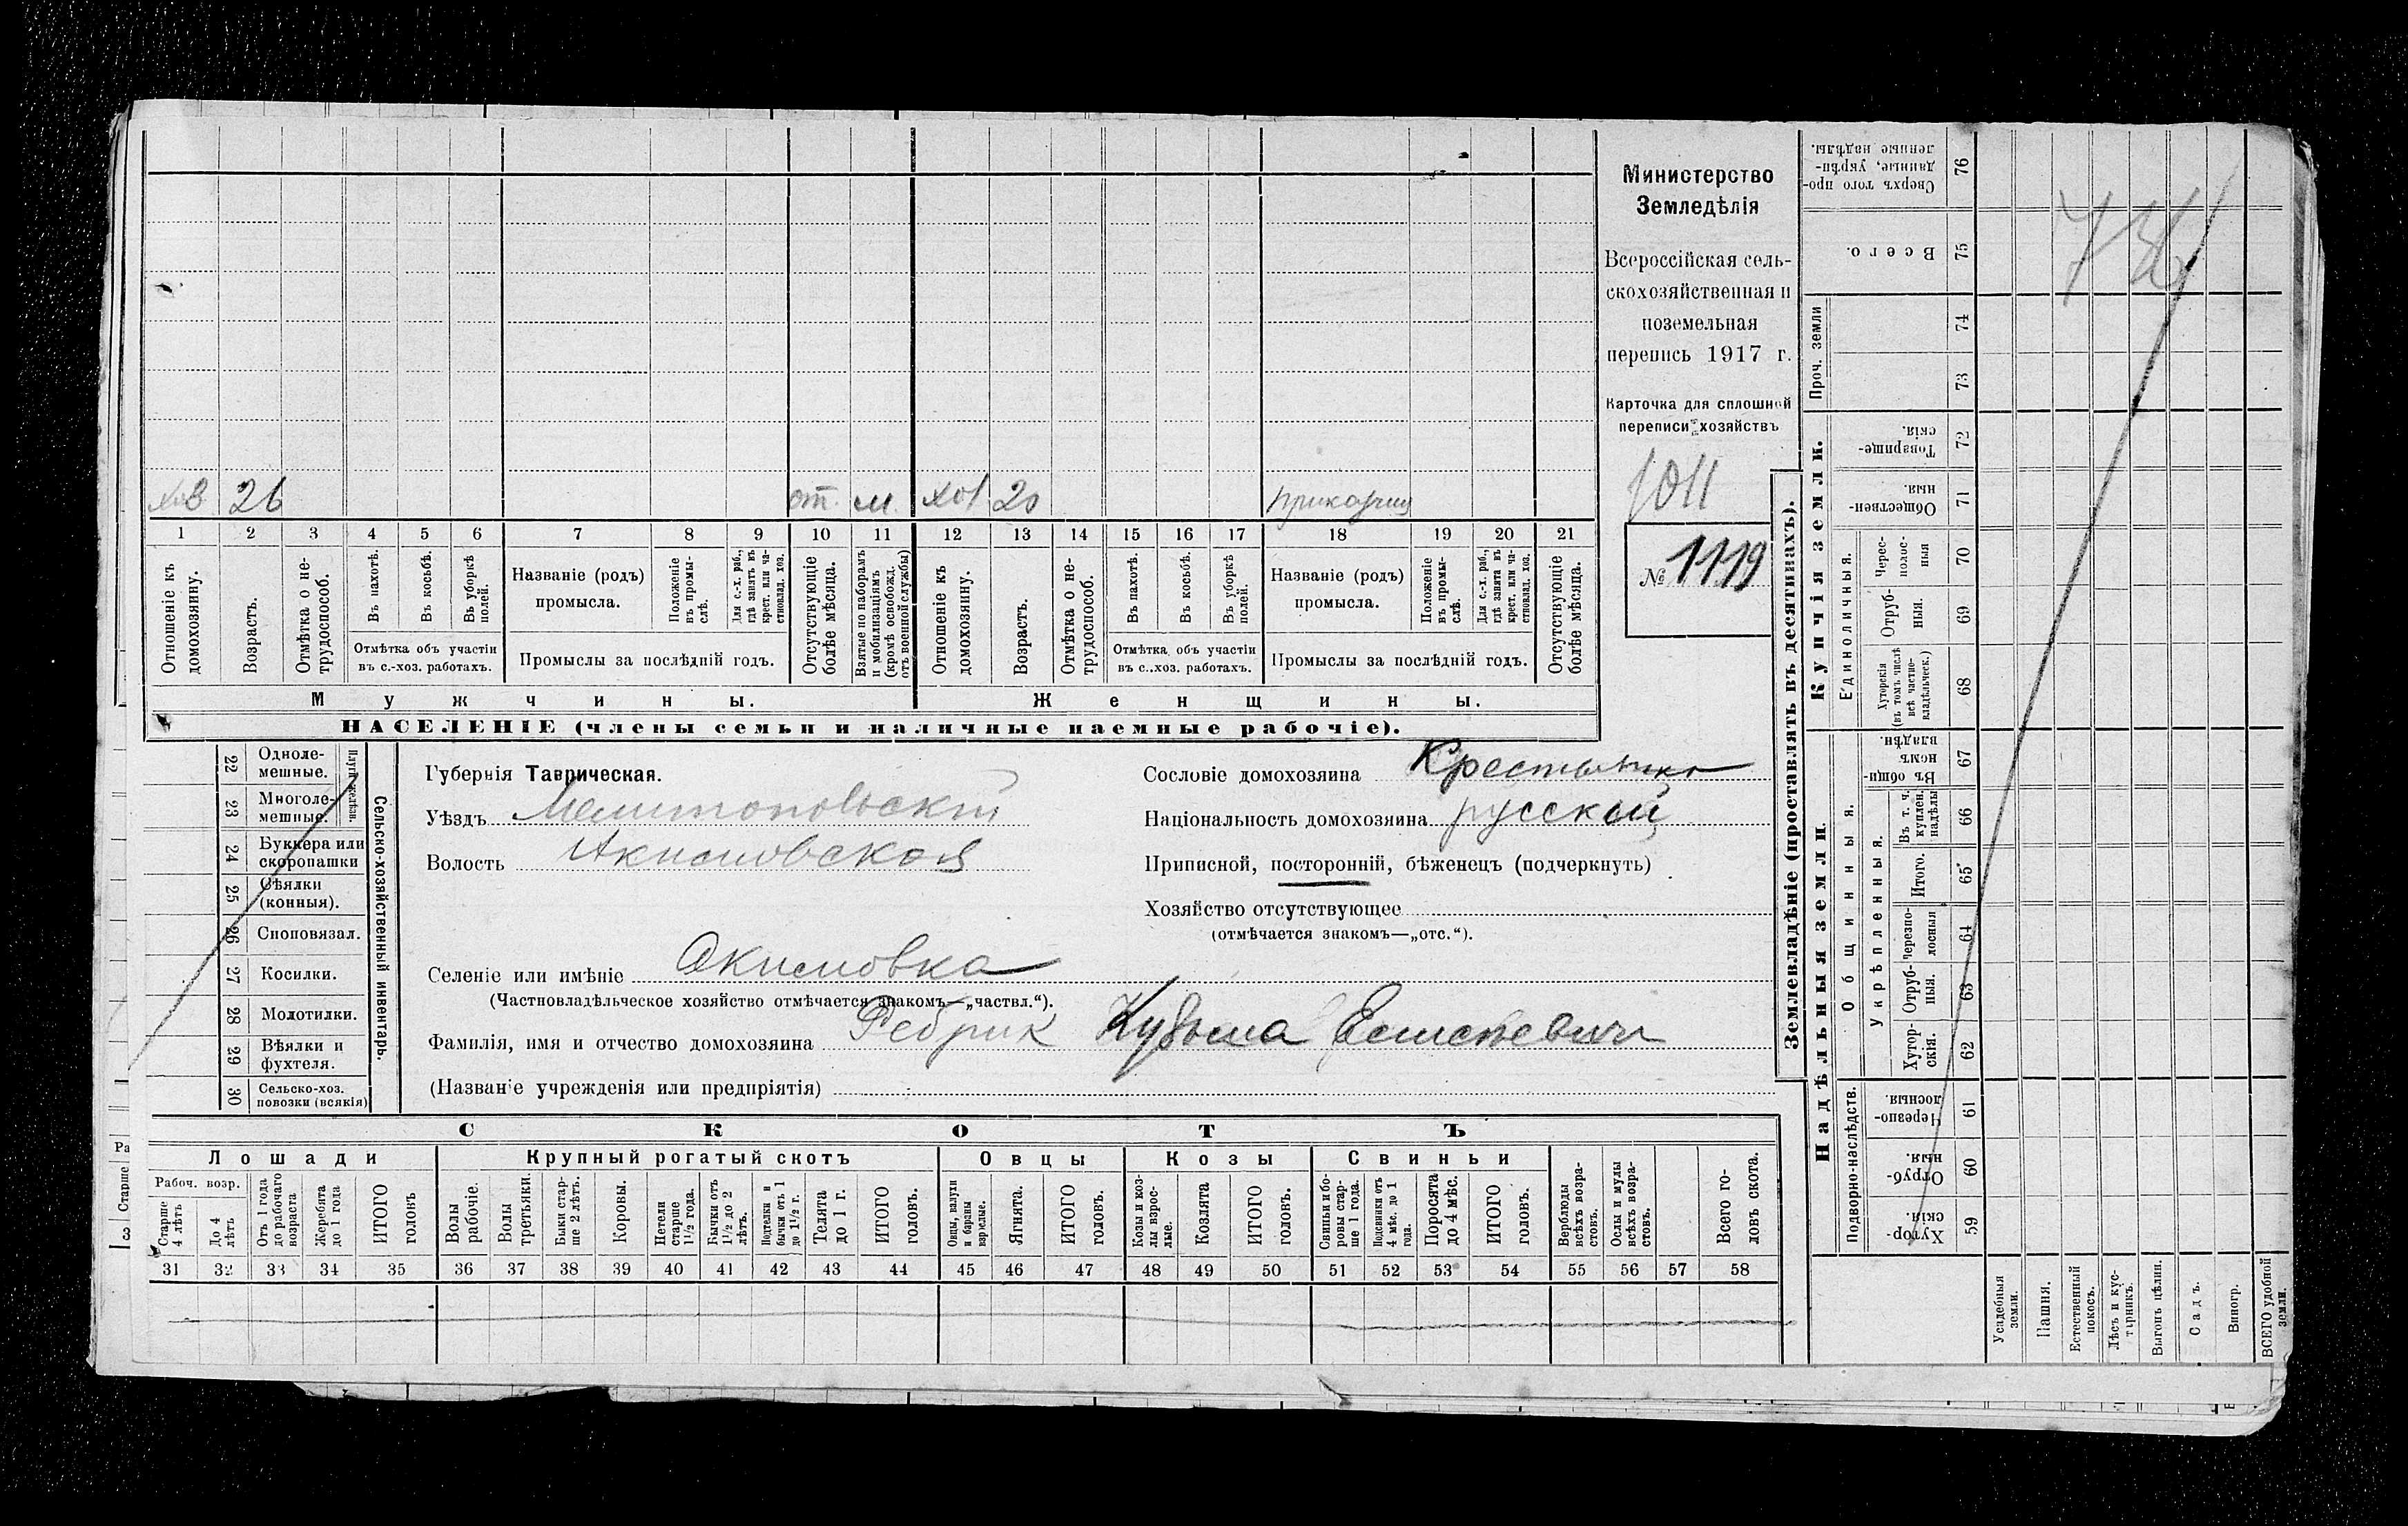 Министерство
Земледѣлія
Всероссійская сель-
скохозяйственная и
поземельная
перепись 1917 г.
Карточка для сплошной
переписи хозяйствъ
1011
№ 1119
хоз 26 от. м. хоз 20
1 2 3 4 5 6 7 8 9 10 11 12 13 14 15 16 17 18 19 20 21
Отношеніе къ домохозяину.
Возрастъ.
Отмѣтка о не-трудоспособ.
Въ пахотѣ.
Въ косьбѣ.
Въ уборкѣ полей.
Отмѣтка объ участіи
въ с.-хоз. работахъ.
Названіе (родъ)
промысла.
Положеніе въ промы-слѣ.
Для с.-х. раб., гдѣ занятъ въ крест. или ча-стновлад. хоз.
Промыслы за послѣдній годъ.
Отсутствующіе болѣе мѣсяца.
Взятые по наборамъ и мобилизаціямъ (кромѣ освобожд. отъ военной службы)
Отношеніе къ домохозяину.
Возрастъ.
Отмѣтка о не-трудоспособ.
Въ пахотѣ.
Въ косьбѣ.
Въ уборкѣ полей.
Отмѣтка объ участіи
въ с.-хоз. работахъ.
Названіе (родъ)
промысла.
Положеніе въ промы-слѣ.
Для с.-х. раб., гдѣ занята въ крест. или ча-стновлад. хоз.
Промыслы за послѣдній годъ.
Отсутствующіе болѣе мѣсяца.
Мужчины. Женщины.
НАСЕЛЕНІЕ (члены семьи и наличные наемные рабочіе).
22 Одноле-мешные.
23 Многоле-мешные.
24 Буккера или скоропашки
25 Сѣялки (конныя).
26 Сноповязал.
27 Косилки.
28 Молотилки.
29 Вѣялки и фухтеля.
30 Сельско-хоз. повозки (всякія)
Сельско-хозяйственный инвентарь.
Губернія Таврическая.
Уѣздъ Мелитопольскій
Волость Акимовская
Сословіе домохозяина
Національность домохозяина русскій
Приписной, посторонній, бѣженецъ (подчеркнуть)
Хозяйство отсутствующее
(отмѣчается знакомъ—„отс.“).
Селеніе или имѣніе Акимовка
(Частновладѣльческое хозяйство отмѣчается знакомъ—„частвл.“).
Фамилія, имя и отчество домохозяина Ребрик Кузьма
(Названіе учрежденія или предпріятія)
СКОТЪ
Лошади Крупный рогатый скотъ Овцы Козы Свиньи
Рабоч. возр.
Старше 4 лѣтъ
До 4 лѣтъ
Отъ 1 года до рабочаго возраста
Жеребята до 1 года
ИТОГО головъ
Волы рабочіе.
Волы третьяки.
Быки стар-ше 2 лѣтъ.
Коровы.
Нетели старше 1½ года.
Бычки отъ 1½ до 2 лѣтъ.
Подтелки и бычки отъ 1 до 1½ г.
Телята до 1 г.
ИТОГО головъ.
Овцы, валухи и бараны взрслые.
Ягнята.
ИТОГО головъ.
Козы и коз-лы взрос-лые.
Козлята
ИТОГО головъ.
Свиньи и бо-ровы стар-ше 1 года.
Подсвинки отъ 4 мѣс. до 1 года.
Поросята до 4 мѣс.
ИТОГО головъ.
Верблюды всѣхъ возра-стовъ.
Ослы и мулы всѣхъ возра-стовъ.
Всего го-ловъ скота.
31 32 33 34 35 36 37 38 39 40 41 42 43 44 45 46 47 48 49 50 51 52 53 54 55 56 57 58
Землевладѣніе (проставлять въ десятинахъ).
Купчія земли.
Надѣльныя земли
Сверхъ того про-данные, укрѣп-ленные надѣлы. 76
Всего. 75
Проч. земли 74 73
Товарище-скія. 72
Обществен-ныя. 71
Единоличныя.
Черес-полос-ныя 70
Отруб-ныя. 69
Хуторскія (въ томъ числѣ всѣ частно-владѣльческ.) 68
Общинныя.
Въ общин-номъ владѣн. 67
Укрѣпленныя.
Въ т. ч. куплен. надѣлы 66
Итого. 65
Черезпо-лосныя 64
Отруб-ныя. 63
Хутор-скія. 62
Подворно-наслѣдств.
Черезпо-лосныя 61
Отруб-ныя. 60
Хутор-скія. 59
Усадебныя земли.
Пашня.
Естественный покосъ.
Лѣсъ и кус-тарникъ.
Выгонъ цѣлин.
Садъ.
Виногр.
ВСЕГО удобной земли.